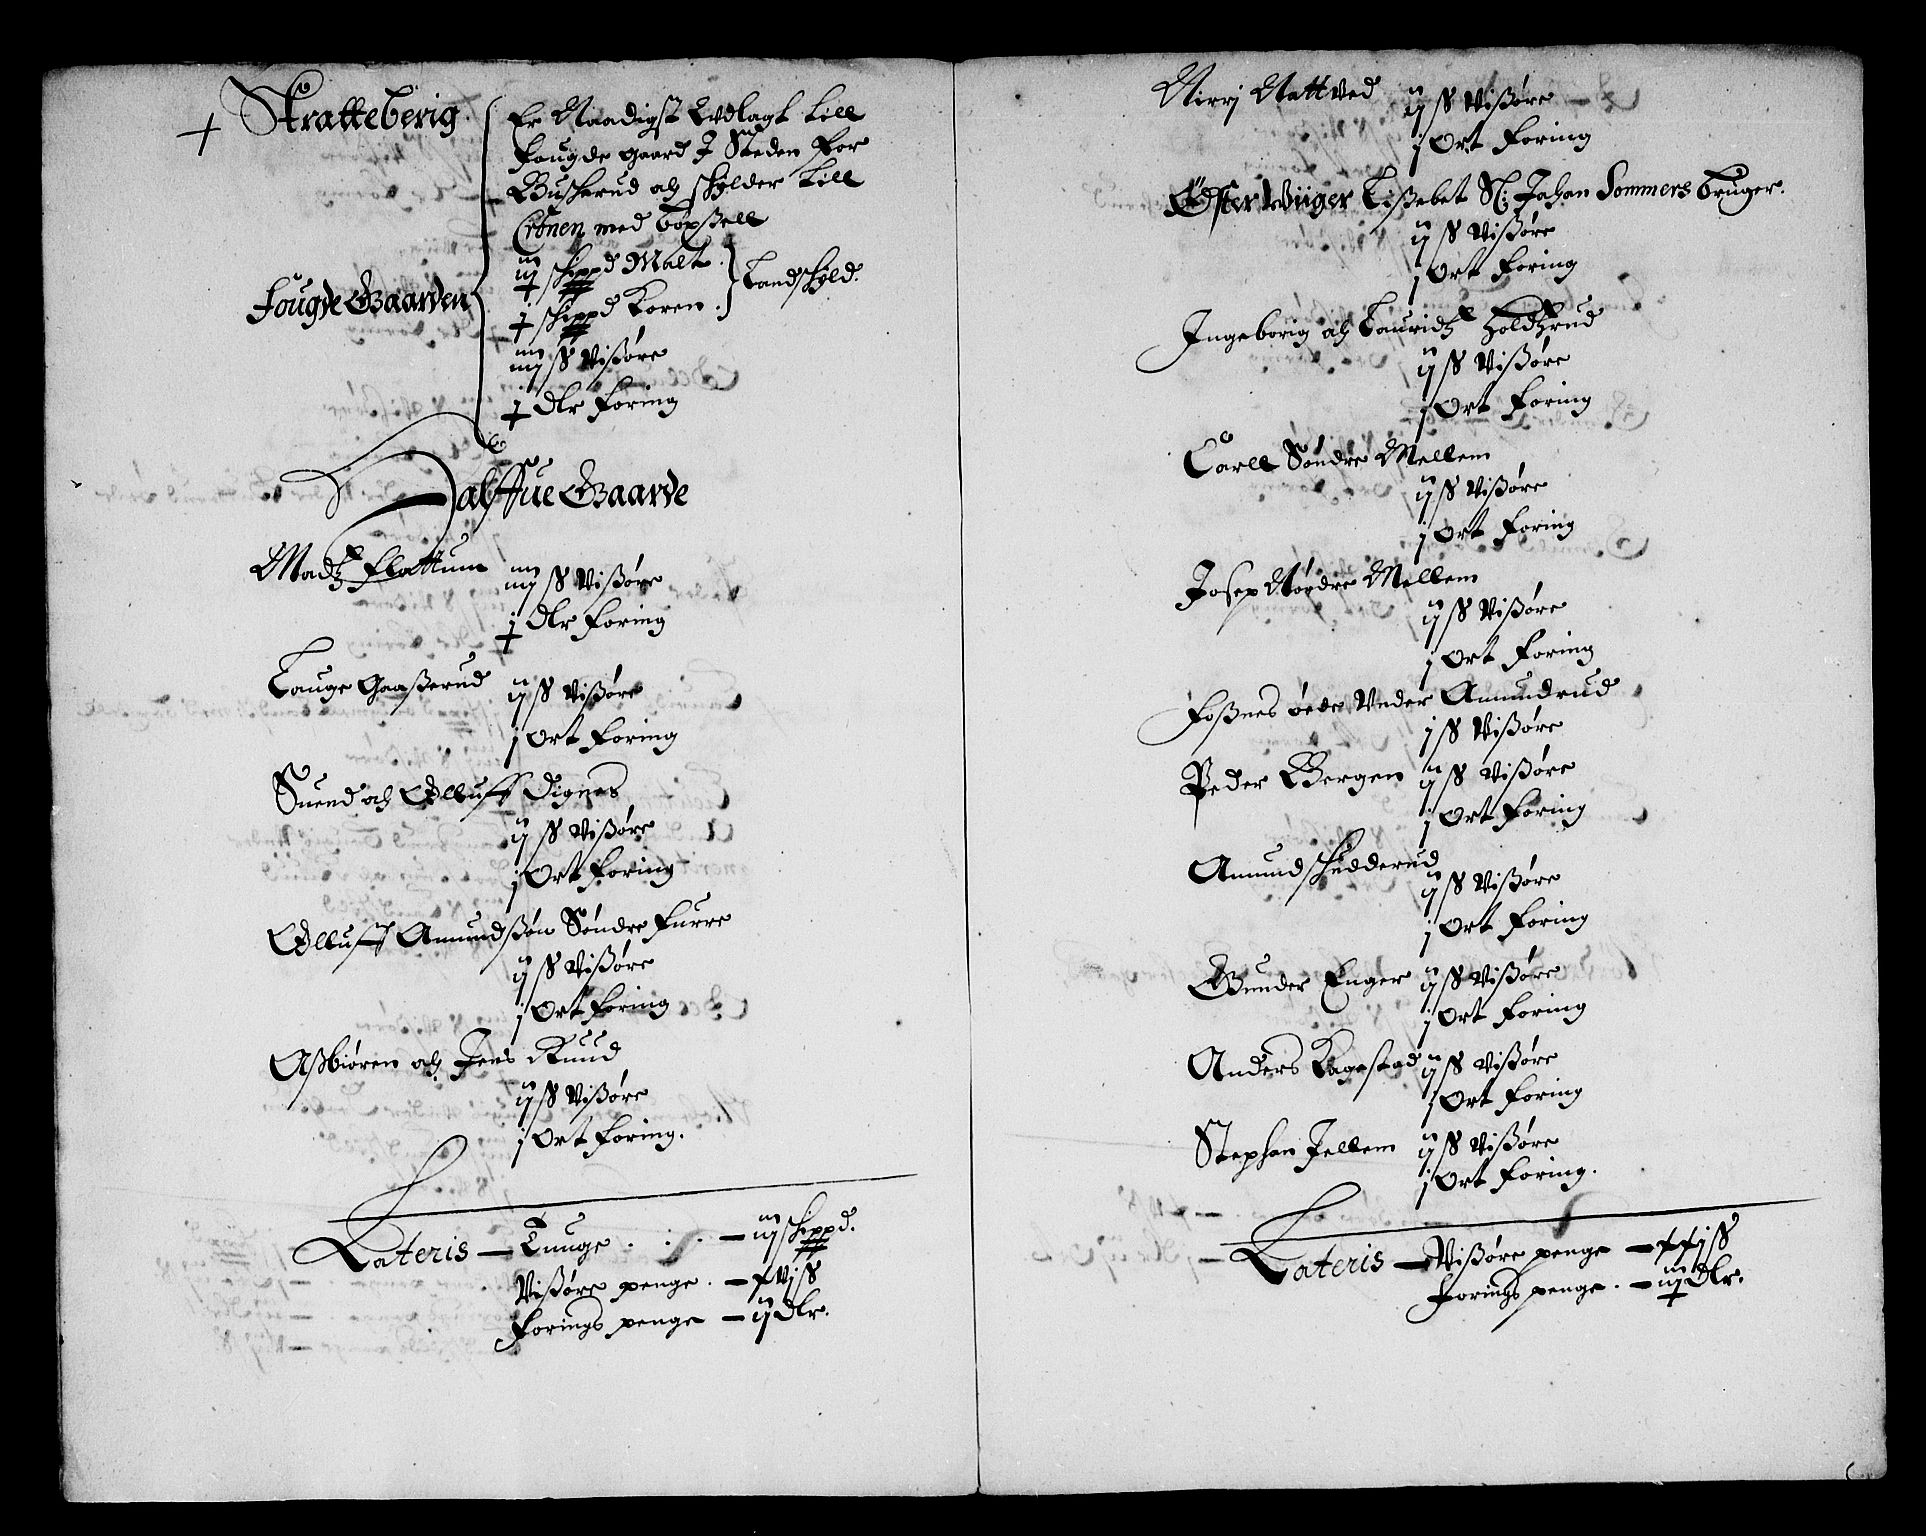 + Skratteberig
Er Naadigst Udlagt till
fougde gaard J Steden for
Buskerud och skylder till
Cronen med boxsell
iij skippd Malt
j skippd Koren.
Landskyld.
Fougde Gaarden
iiij ß Vißøre
j dlr foring
Halffue Gaarde
Madtz Flattum iiij ß Vißøre
j dlr foring
Lauge Gaaßerud ij ß Vißøre
j ort foring
Suend och Olluff Dignes
ij ß Vißøre
j Ort foring
Olluff Amundßøn Søndre Furre
ij ß Vißøre
j Ort foring
Aßbiøren och Jens Ruud
ij ß Vißøre
j ort foring.
Lateris — Tunge . . . — iij skippd.
Vißøre penge . — xvj ß
forings penge — ij dlr.
Nirij Nattved ij ß Vißøre
j Ort foring
Øster Wiiger Lißebet Sl: Johan Sommers bruger.
ij ß Vißøre
j Ort foring
Ingeborig och Lauridtz Holdtzrud
ij ß Vißøre
j Ort foring
Carll Søndre Mellem
ij ß Vißøre
j ort foring
Josep Nordre Mellem
ij ß Vißøre
j Ort foring
Foßnes øede Under Amundrud
j ß Vißøre
Peder Bergen ij ß Vißøre
j Ort foring
Amund skudderud
ij ß Vißøre
j Ort foring
Gunder Enger ij ß Vißøre
j Ort foring
Anders Kagestad ij ß Vißøre
j Ort foring
Stephan Jellem ij ß Vißøre
j Ort foring.
Lateris — Vißøre penge — xxj ß
forings penge . — iij dlr.